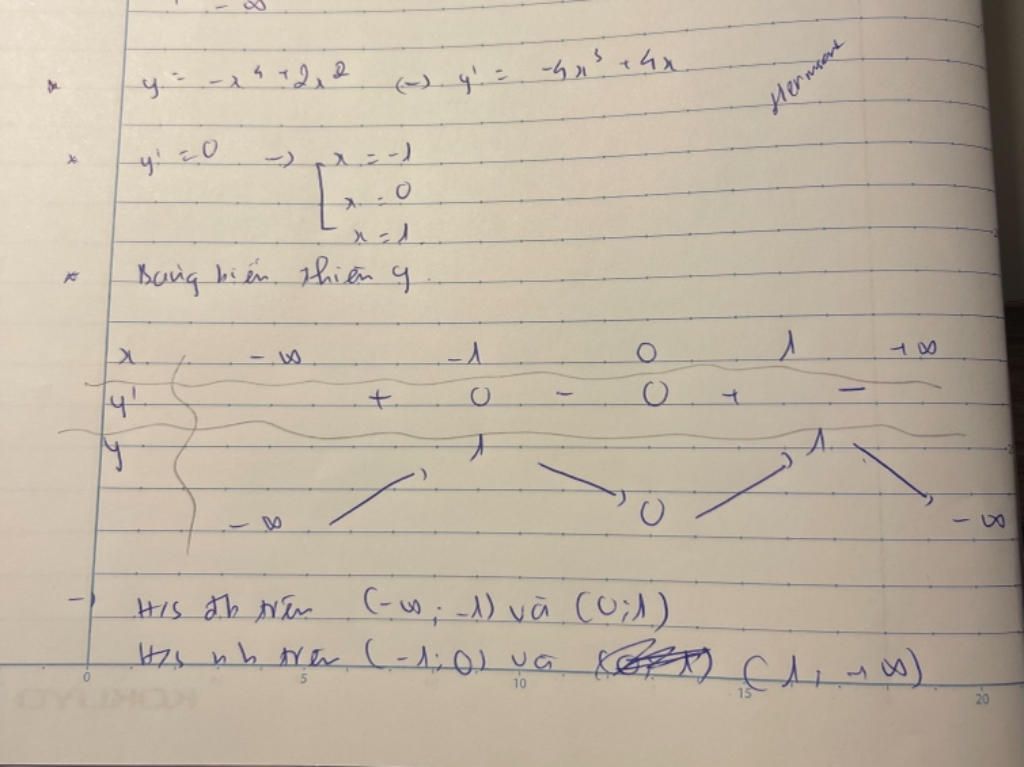 - ∞
* y = -x⁴ + 2x² (→) y' = -4x³ + 4x
Hermione
* y' = 0 → [ x = -1
x = 0
x = 1
* Bảng biến thiên y
x - ∞ -1 0 1 + ∞
y' + 0 - 0 + -
y 1 1
- ∞ 0 - ∞
→ H/S đb trên (-∞; -1) và (0; 1)
H/S nb trên (-1; 0) và (1; +∞)
0 5 10 15 20
KOKUYO